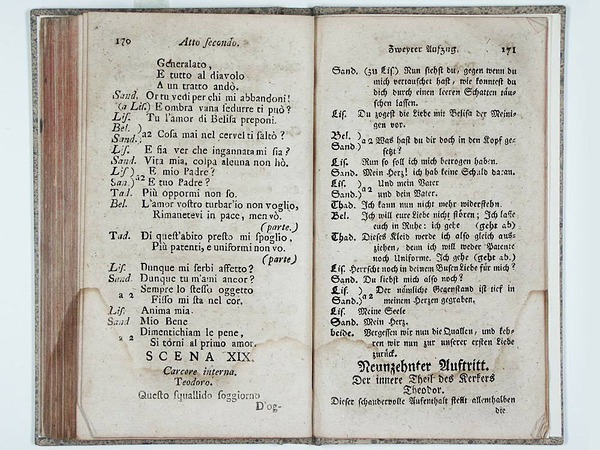 170 Atto secondo.
Generalato,
E tutto al diavolo
A un tratto andò.
Sand. Or tu vedi per chi mi abbandoni!
(a Lis.) E ombra vana sedurre ti può?
Lis. Tu l'amor di Belisa preponi.
Bel. )
Sand. ) a2 Cosa mai nel cervel ti saltò?
Lis. E sia ver che ingannata mi sia?
Sand. Vita mia, colpa alcuna non hò.
Lis) E mio Padre?
San.) a2 E tuo Padre?
Tad. Più oppormi non so.
Bel. L'amor vostro turbar'io non voglio,
Rimanetevi in pace, men vò.
(parte.)
Tad. Di quest'abito presto mi spoglio,
Più patenti, e uniformi non vo.
(parte)
Lis. Dunque mi serbi affetto?
Sand. Dunque tu m'ami ancor?
a 2 Sempre lo stesso oggetto
Fisso mi sta nel cor.
Lis. Anima mia.
Sand Mio Bene
a 2 Dimentichiam le pene,
Si torni al primo amor.
SCENA XIX.
Carcere interna.
Teodoro.
Questo squallido soggiorno
D'og-
Zweyter Aufzug. 171
Sand. (zu Lis.) Nun siehst du, gegen wenn du
mich vertauschet hast, wie konntest du
dich durch einen leeren Schatten täu-
schen lassen.
Lis. Du zogest die Liebe mit Belisa der Meini-
gen vor.
Bel. )
Sand ) a 2 Was hast du dir doch in den Kopf ge-
setzt?
Lis. Nun so soll ich mich betrogen haben.
Sand. Mein Herz! ich hab keine Schuld daran.
Lis. ) Und mein Vater
Sand.) a 2 und dein Vater.
Thad. Ich kann nun nicht mehr widerstehn.
Bel. Ich will eure Liebe nicht stören; Ich lasse
euch in Ruhe: ich gehe (geht ab.)
Thad. Dieses Kleid werde ich also gleich aus-
ziehen, denn ich will weder Patente
noch Uniforme. Ich gehe (geht ab.)
Lis. Herrsche noch in deinem Busen Liebe für mich?
Sand. Du liebst mich also noch?
Lis. ) Der nämliche Gegenstand ist tief in
Sand.) a 2 meinem Herzen gegraben.
Lis. Meine Seele
Sand. Mein Herz.
beide. Vergessen wir nun die Quallen, und keh-
ren wir nun zur unserer ersten Liebe
zurück.
Neunzehnter Auftritt.
Der innere Theil des Kerkers
Theodor.
Dieser schaudervolle Aufenthalt stellt allenthalben
die